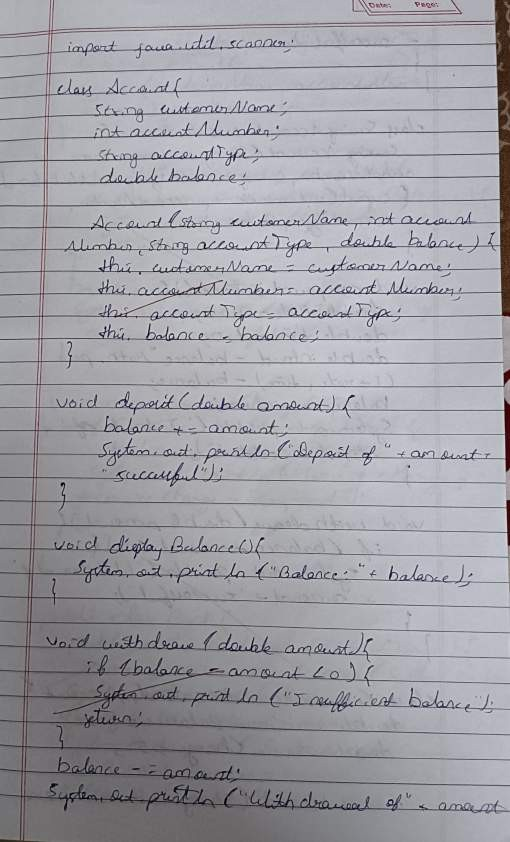 Date: Page:
import java.util.scanner;
class Account{
String customerName;
int accountNumber;
String accountType;
double balance;
Account(String customerName, int account
Number, String accountType, double balance){
this.customerName = customerName;
this.accountNumber = accountNumber;
this.accountType = accountType;
this.balance = balance;
}
void deposit(double amount){
balance += amount;
System.out.println("Deposit of" + amount +
"successful");
}
void display Balance(){
System.out.println("Balance:" + balance);
}
void withdraw(double amount){
if (balance - amount < 0){
System.out.println("Insufficient balance");
return;
}
balance -= amount;
System.out println("Withdrawal of" + amount